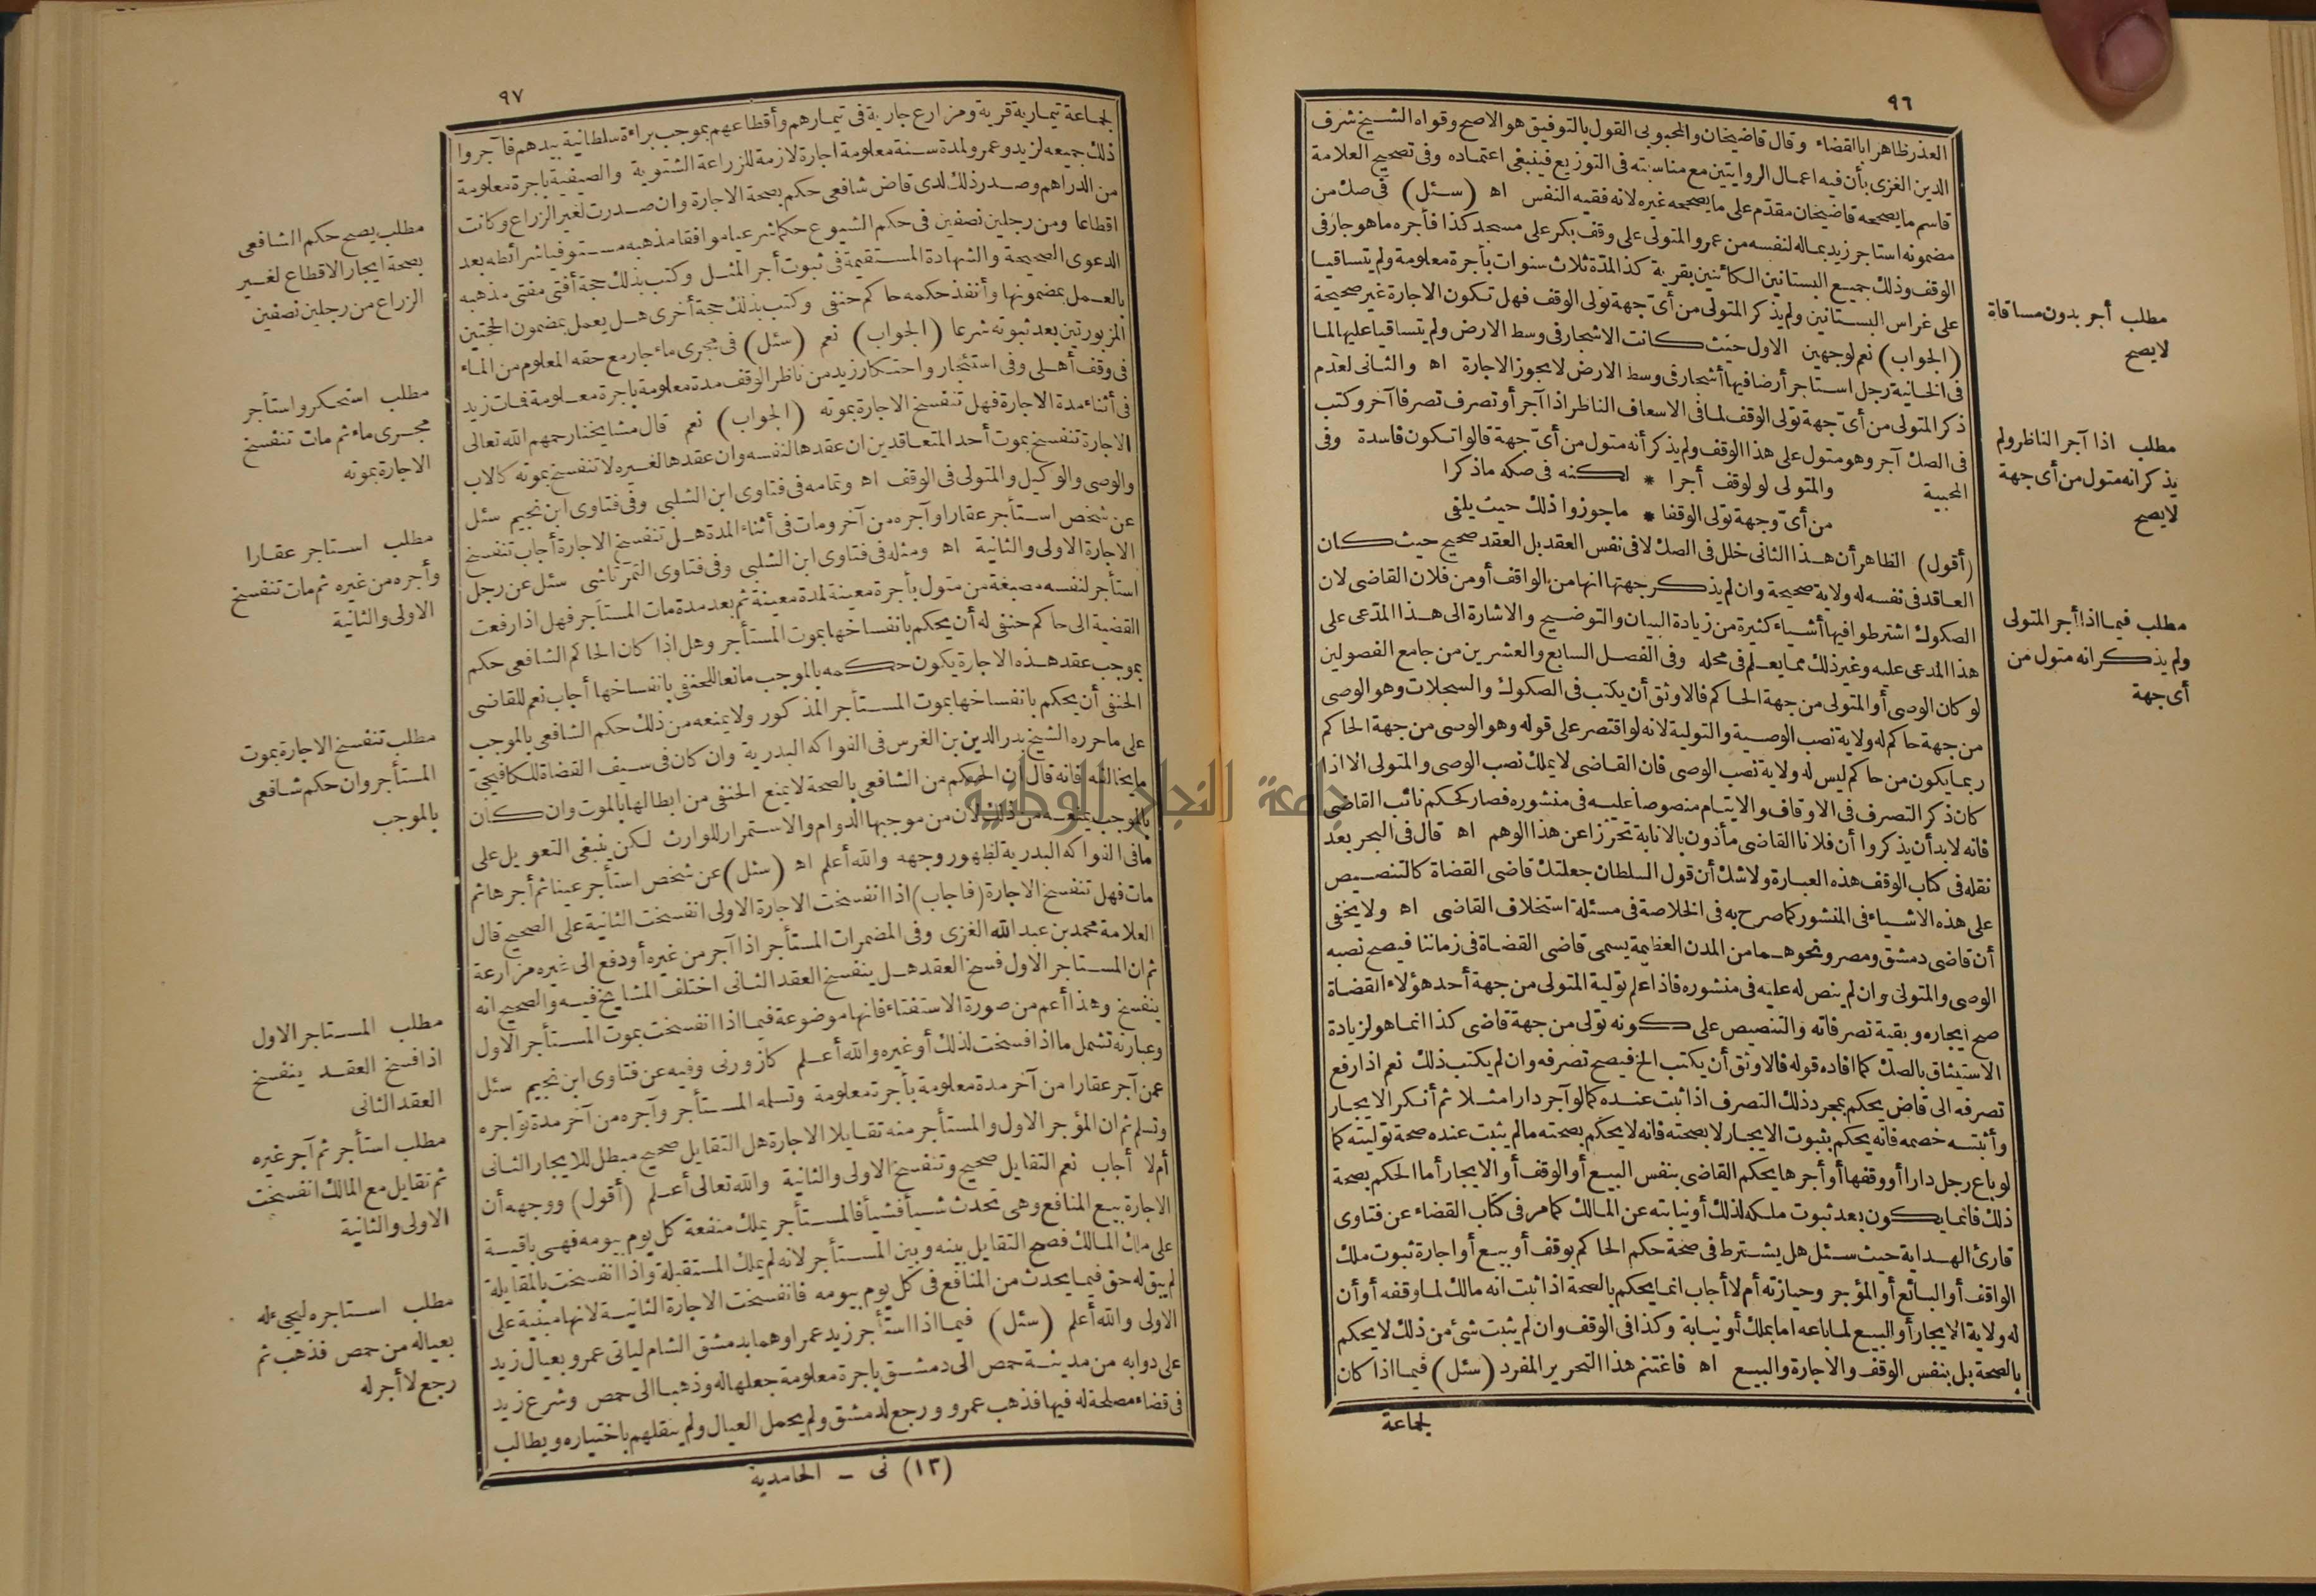 ٩٦
العذر ظاهرا بالقضاء وقال قاضيخان والمحبوبى القول بالتوفيق هو الاصح وقواه الشيخ شرف
الدين الغزى بأن فيه اعمال الروايتين مع مناسبته فى التوزيع فينبغى اعتماده وفى تصحيح العلامة
قاسم ما يصححه قاضيخان مقدم على ما يصححه غيره لانه فقيه النفس اه (سئل) فى صك من
مضمونه استاجر زيد بماله لنفسه من عمرو المتولى على وقف بكر على مسجد كذا فأجره ما هو جار فى
الوقف وذلك جميع البستانين الكائنين بقرية كذا لمدة ثلاث سنوات بأجرة معلومة ولم يتساقيا
على غراس البستانين ولم يذكر المتولى من أى جهة تولى الوقف فهل تكون الاجارة غير صحيحة
(الجواب) نعم لوجهين الاول حيث كانت الاشجار فى وسط الارض ولم يتساقيا عليها لما
فى الخانية رجل استاجر أرضا فيها أشجار فى وسط الارض لا يجوز الاجارة اه والثانى لعدم
ذكر المتولى من أى جهة تولى الوقف لما فى الاسعاف الناظر اذا آجر أو تصرف تصرفا آخر وكتب
فى الصك آجر وهو متول على هذا الوقف ولم يذكر أنه متول من أى جهة قالوا تكون فاسدة وفى
المحبية والمتولى لو لوقف أجرا * لكنه فى صكه ما ذكرا
من أى وجهة تولى الوقفا * ماجوزوا ذلك حيث يلفى
(أقول) الظاهر أن هذا الثانى خلل فى الصك لا فى نفس العقد بل العقد صحيح حيث كان
العاقد فى نفسه له ولاية صحيحة وان لم يذكر جهتها انها من الواقف أو من فلان القاضى لان
الصكوك اشترطوا فيها أشياء كثيرة من زيادة البيان والتوضيح والاشارة الى هذا المدعى على
هذا المدعى عليه وغير ذلك مما يعلم فى محله وفى الفصل السابع والعشرين من جامع الفصولين
لو كان الوصى أو المتولى من جهة الحاكم فالاوثق أن يكتب فى الصكوك والسجلات وهو الوصى
من جهة حاكم له ولاية نصب الوصية والتولية لانه لو اقتصر على قوله وهو الوصى من جهة الحاكم
ربما يكون من حاكم ليس له ولاية نصب الوصى فان القاضى لا يملك نصب الوصى والمتولى الا اذا
كان ذكر التصرف فى الاوقاف والايتام منصوصا عليه فى منشوره فصار كحكم نائب القاضى
فانه لا بد أن يذكروا أن فلانا القاضى مأذون بالانابة تحرزا عن هذا الوهم اه قال فى البحر بعد
نقله فى كتاب الوقف هذه العبارة ولا شك أن قول السلطان جعلتك قاضى القضاة كالتنصيص
على هذه الاشياء فى المنشور كما صرح به فى الخلاصة فى مسئلة استخلاف القاضى اه ولا يخفى
أن قاضى دمشق ومصر ونحوهما من المدن العظيمة يسمى قاضى القضاة فى زماننا فيصح نصبه
الوصى والمتولى وان لم ينص له عليه فى منشوره فاذا علم تولية المتولى من جهة أحد هؤلاء القضاة
صح ايجاره وبقية تصرفاته والتنصيص على كونه تولى من جهة قاضى كذا انما هو لزيادة
الاستيثاق بالصك كما افاده قوله فالاوثق أن يكتب الخ فيصح تصرفه وان لم يكتب ذلك نعم اذا رفع
تصرفه الى قاض يحكم بمجرد ذلك التصرف اذا ثبت عنده كما لو آجر دارا مثلا ثم أنكر الايجار
وأثبته خصمه فانه يحكم بثبوت الايجار لا بصحته فانه لا يحكم بصحته ما لم يثبت عنده صحة توليته كما
لو باع رجل دارا أو وقفها أو أجرها يحكم القاضى بنفس البيع أو الوقف أو الايجار أما الحكم بصحة
ذلك فانما يكون بعد ثبوت ملكه لذلك أو نيابته عن المالك كما مر فى كتاب القضاء عن فتاوى
قارئ الهداية حيث سئل هل يشترط فى صحة حكم الحاكم بوقف أو بيع أو اجارة ثبوت ملك
الواقف أو البائع أو المؤجر وحيازته أم لا أجاب انما يحكم بالصحة اذا ثبت انه مالك لما وقفه أو أن
له ولاية الايجار أو البيع لما باعه اما بملك أو نيابة وكذا فى الوقف وان لم يثبت شئ من ذلك لا يحكم
بالصحة بل بنفس الوقف والاجارة والبيع اه فاغتنم هذا التحرير المفرد (سئل) فيما اذا كان
لجماعة
مطلب أجر بدون مساقاة
لا يصح
مطلب اذا آجر الناظر ولم
يذكر انه متول من أى جهة
لا يصح
مطلب فيما اذا أجر المتولى
ولم يذكر انه متول من
أى جهة
٩٧
لجماعة تيمارية قرية ومزارع جارية فى تيمارهم وأقطاعهم بموجب براءة سلطانية بيدهم فآجروا
ذلك جميعه لزيد وعمرو لمدة سنة معلومة اجارة لازمة للزراعة الشتوية والصيفية باجرة معلومة
من الدراهم وصدر ذلك لدى قاض شافعى حكم بصحة الاجارة وان صدرت لغير الزراع وكانت
اقطاعا ومن رجلين نصفين فى حكم الشيوع حكما شرعيا موافقا مذهبه مستوفيا شرائطه بعد
الدعوى الصحيحة والشهادة المستقيمة فى ثبوت أجر المثل وكتب بذلك حجة أفتى مفتى مذهبه
بالعمل بمضمونها وأنفذ حكمه حاكم حنفى وكتب بذلك حجة أخرى هل يعمل بمضمون الحجتين
المزبورتين بعد ثبوته شرعا (الجواب) نعم (سئل) فى مجرى ماء جار مع حقه المعلوم من الماء
فى وقف أهلى وفى استئجار واحتكار زيد من ناظر الوقف مدة معلومة باجرة معلومة فمات زيد
فى أثناء مدة الاجارة فهل تنفسخ الاجارة بموته (الجواب) نعم قال مشايخنا رحمهم الله تعالى
الاجارة تنفسخ بموت أحد المتعاقدين ان عقدها لنفسه وان عقدها لغيره لا تنفسخ بموته كالاب
والوصى والوكيل والمتولى فى الوقف اه وتمامه فى فتاوى ابن الشلبى وفى فتاوى ابن نجيم سئل
عن شخص استأجر عقارا وآجره من آخر ومات فى أثناء المدة هل تنفسخ الاجارة أجاب تنفسخ
الاجارة الاولى والثانية اه ومثله فى فتاوى ابن الشلبى وفى فتاوى التمرتاشى سئل عن رجل
استأجر لنفسه مصبغة من متول بأجرة معينة لمدة معينة ثم بعد مدة مات المستأجر فهل اذا رفعت
القضية الى حاكم حنفى له أن يحكم بانفساخها بموت المستأجر وهل اذا كان الحاكم الشافعى حكم
بموجب عقد هذه الاجارة يكون حكمه بالموجب مانعا للحنفى بانفساخها أجاب نعم للقاضى
الحنفى أن يحكم بانفساخها بموت المستأجر المذكور ولا يمنعه من ذلك حكم الشافعى بالموجب
على ما حرره الشيخ بدر الدين بن الغرس فى الفواكه البدرية وان كان فى سيف القضاة للكافيجى
ما يخالفه فانه قال ان الحكم من الشافعى بالصحة لا يمنع الحنفى من ابطالها بالموت وان كان
بالموجب يمنعه من ذلك لان من موجبها الدوام والاستمرار للوارث لكن ينبغى التعويل على
ما فى الفواكه البدرية لظهور وجهه والله أعلم اه (سئل) عن شخص استأجر عينا ثم أجرها ثم
مات فهل تنفسخ الاجارة (فاجاب) اذا انفسخت الاجارة الاولى انفسخت الثانية على الصحيح قال
العلامة محمد بن عبد الله الغزى وفى المضمرات المستأجر اذا آجر من غيره أو دفع الى غيره مزارعة
ثم ان المستاجر الاول فسخ العقد هل ينفسخ العقد الثانى اختلف المشايخ فيه والصحيح انه
ينفسخ وهذا أعم من صورة الاستفتاء فانها موضوعة فيما اذا انفسخت بموت المستأجر الاول
وعبارته تشمل ما اذا فسخت لذلك أو غيره والله أعلم كازورنى وفيه عن فتاوى ابن نجيم سئل
عمن آجر عقارا من آخر مدة معلومة بأجرة معلومة وتسلمه المستأجر وآجره من آخر مدة تواجره
وتسلم ثم ان المؤجر الاول والمستأجر منه تقايلا الاجارة هل التقايل صحيح مبطل للايجار الثانى
أم لا أجاب نعم التقايل صحيح وتنفسخ الاولى والثانية والله تعالى أعلم (أقول) ووجهه أن
الاجارة بيع المنافع وهى تحدث شيأ فشيأ فالمستأجر يملك منفعة كل يوم بيومه فهى باقية
على ملك المالك فصح التقايل بينه وبين المستأجر لانه لم يملك المستقبلة واذا انفسخت بالمقايلة
لم يبق له حق فيما يحدث من المنافع فى كل يوم بيومه فانفسخت الاجارة الثانية لانها مبنية على
الاولى والله أعلم (سئل) فيما اذا استأجر زيد عمرا وهما بدمشق الشام لياتى عمرو بعيال زيد
على دوابه من مدينة حمص الى دمشق باجرة معلومة جعلها له وذهبا الى حمص وشرع زيد
فى قضاء مصلحة له فيها فذهب عمرو ورجع لدمشق ولم يحمل العيال ولم ينقلهم باختياره ويطالب
(١٣) نى - الحامدية
مطلب يصح حكم الشافعى
بصحة ايجار الاقطاع لغير
الزراع من رجلين نصفين
مطلب استحكر واستأجر
مجرى ماء ثم مات تنفسخ
الاجارة بموته
مطلب استاجر عقارا
وأجره من غيره ثم مات تنفسخ
الاولى والثانية
مطلب تنفسخ الاجارة بموت
المستأجر وان حكم شافعى
بالموجب
مطلب المستاجر الاول
اذا فسخ العقد ينفسخ
العقد الثانى
مطلب استأجر ثم آجر غيره
ثم تقايل مع المالك انفسخت
الاولى والثانية
مطلب استاجره ليجىء له
بعياله من حمص فذهب ثم
رجع لا أجر له
جامعة النجاح الوطنية